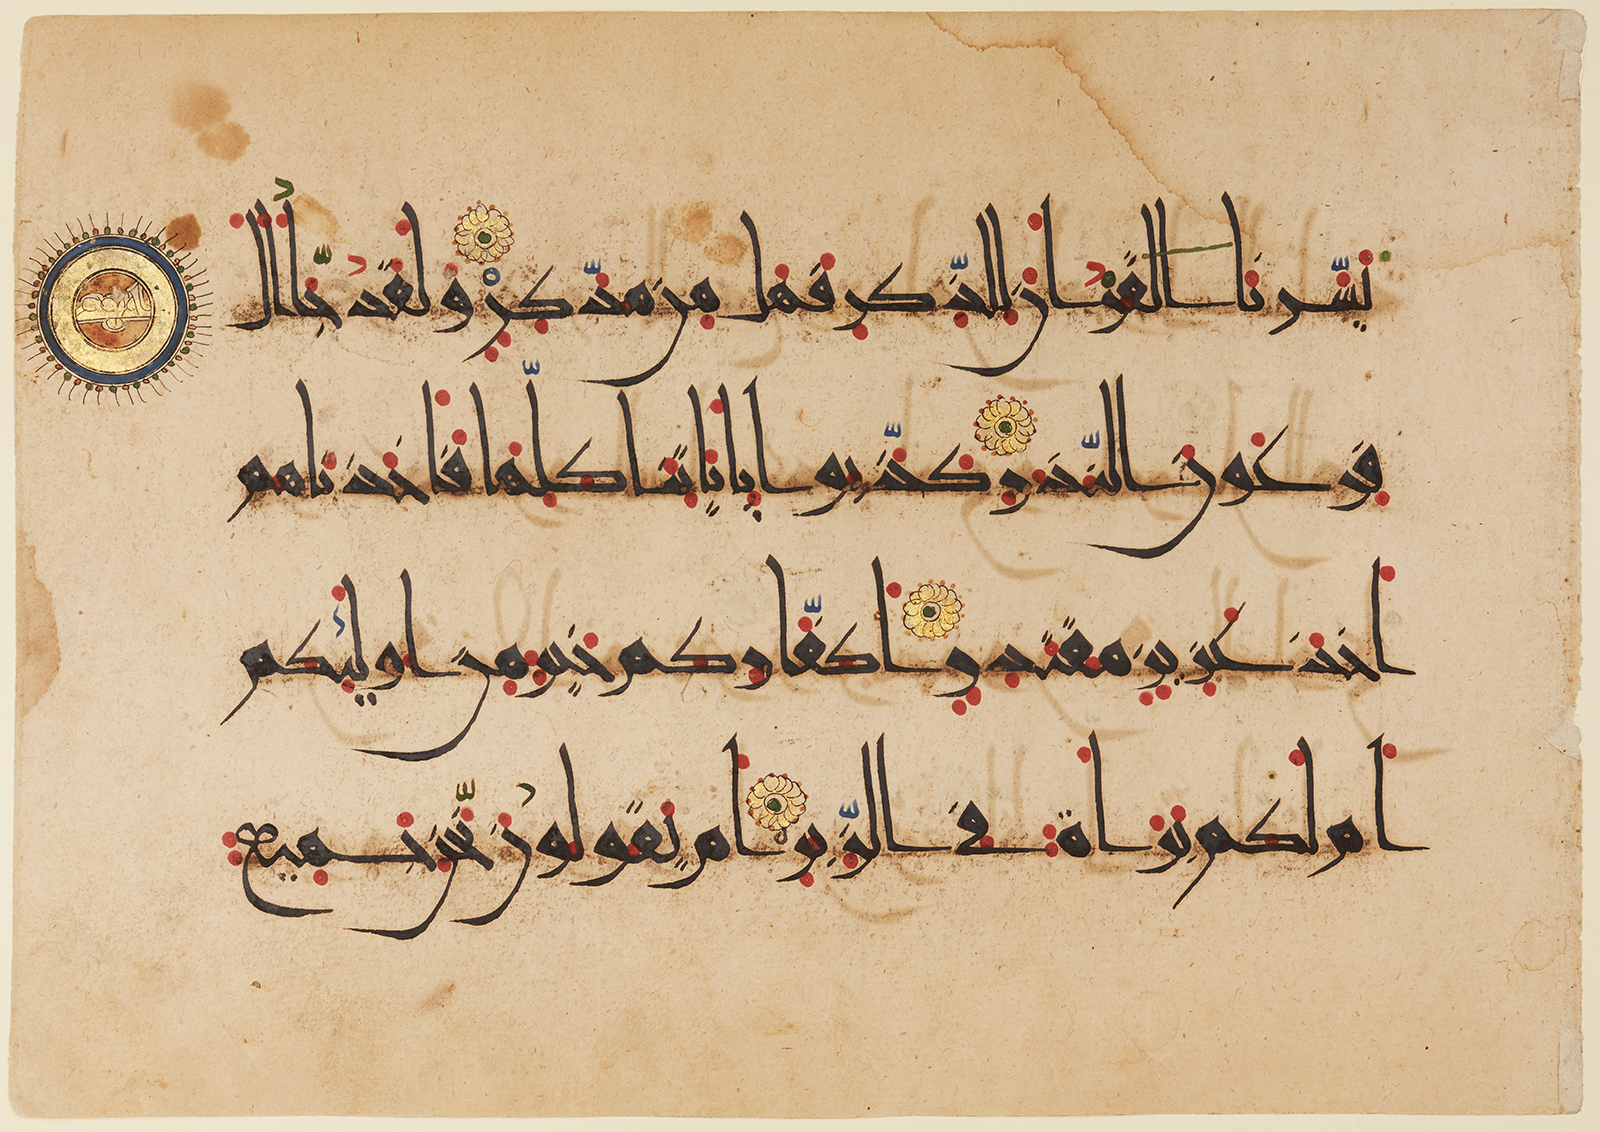 يسّرنا القران للذّكر فهل من مدّكر ولقد جا ال
فرعون النّذر كذّبوا باياتنا كلّها فاخذناهم
اخذ عزيز مقتدر اكفّاركم خير من اوليكم
ام لكم براة في الزّبر ام يقولون نّحن جميع